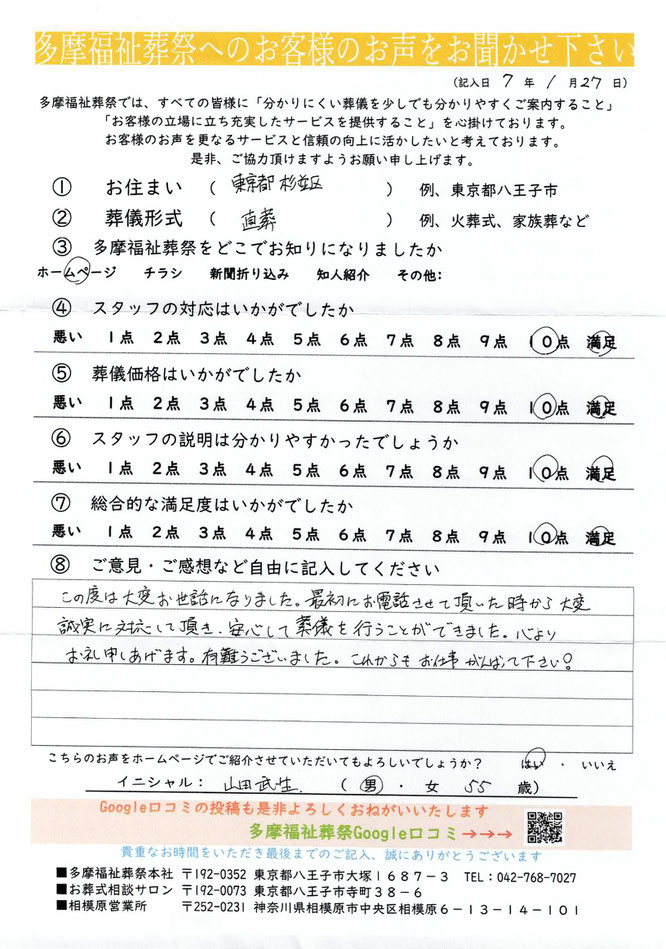 多摩福祉葬祭へのお客様のお声をお聞かせ下さい
(記入日 7 年 1 月 27 日)
多摩福祉葬祭では、すべての皆様に「分かりにくい葬儀を少しでも分かりやすくご案内すること」
「お客様の立場に立ち充実したサービスを提供すること」を心掛けております。
お客様のお声を更なるサービスと信頼の向上に活かしたいと考えております。
是非、ご協力頂けますようお願い申し上げます。
① お住まい ( 東京都 杉並区 ) 例、東京都八王子市
② 葬儀形式 ( 直葬 ) 例、火葬式、家族葬など
③ 多摩福祉葬祭をどこでお知りになりましたか
ホームページ チラシ 新聞折り込み 知人紹介 その他:
④ スタッフの対応はいかがでしたか
悪い 1点 2点 3点 4点 5点 6点 7点 8点 9点 10点 満足
⑤ 葬儀価格はいかがでしたか
悪い 1点 2点 3点 4点 5点 6点 7点 8点 9点 10点 満足
⑥ スタッフの説明は分かりやすかったでしょうか
悪い 1点 2点 3点 4点 5点 6点 7点 8点 9点 10点 満足
⑦ 総合的な満足度はいかがでしたか
悪い 1点 2点 3点 4点 5点 6点 7点 8点 9点 10点 満足
⑧ ご意見・ご感想など自由に記入してください
この度は大変お世話になりました。最初にお電話させて頂いた時から大変
誠実に対応して頂き、安心して葬儀を行うことができました。心より
お礼申しあげます。有難うございました。これからもお仕事がんばって下さい!
こちらのお声をホームページでご紹介させていただいてもよろしいでしょうか? はい ・ いいえ
イニシャル: 山田武生. ( 男 ・ 女 55 歳)
Google口コミの投稿も是非よろしくおねがいいたします
多摩福祉葬祭Google口コミ→→→
貴重なお時間をいただき最後までのご記入、誠にありがとうございます
■多摩福祉葬祭本社 〒192-0352 東京都八王子市大塚1687-3 TEL:042-768-7027
■お葬式相談サロン 〒192-0073 東京都八王子市寺町38-6
■相模原営業所 〒252-0231 神奈川県相模原市中央区相模原6-13-14-101